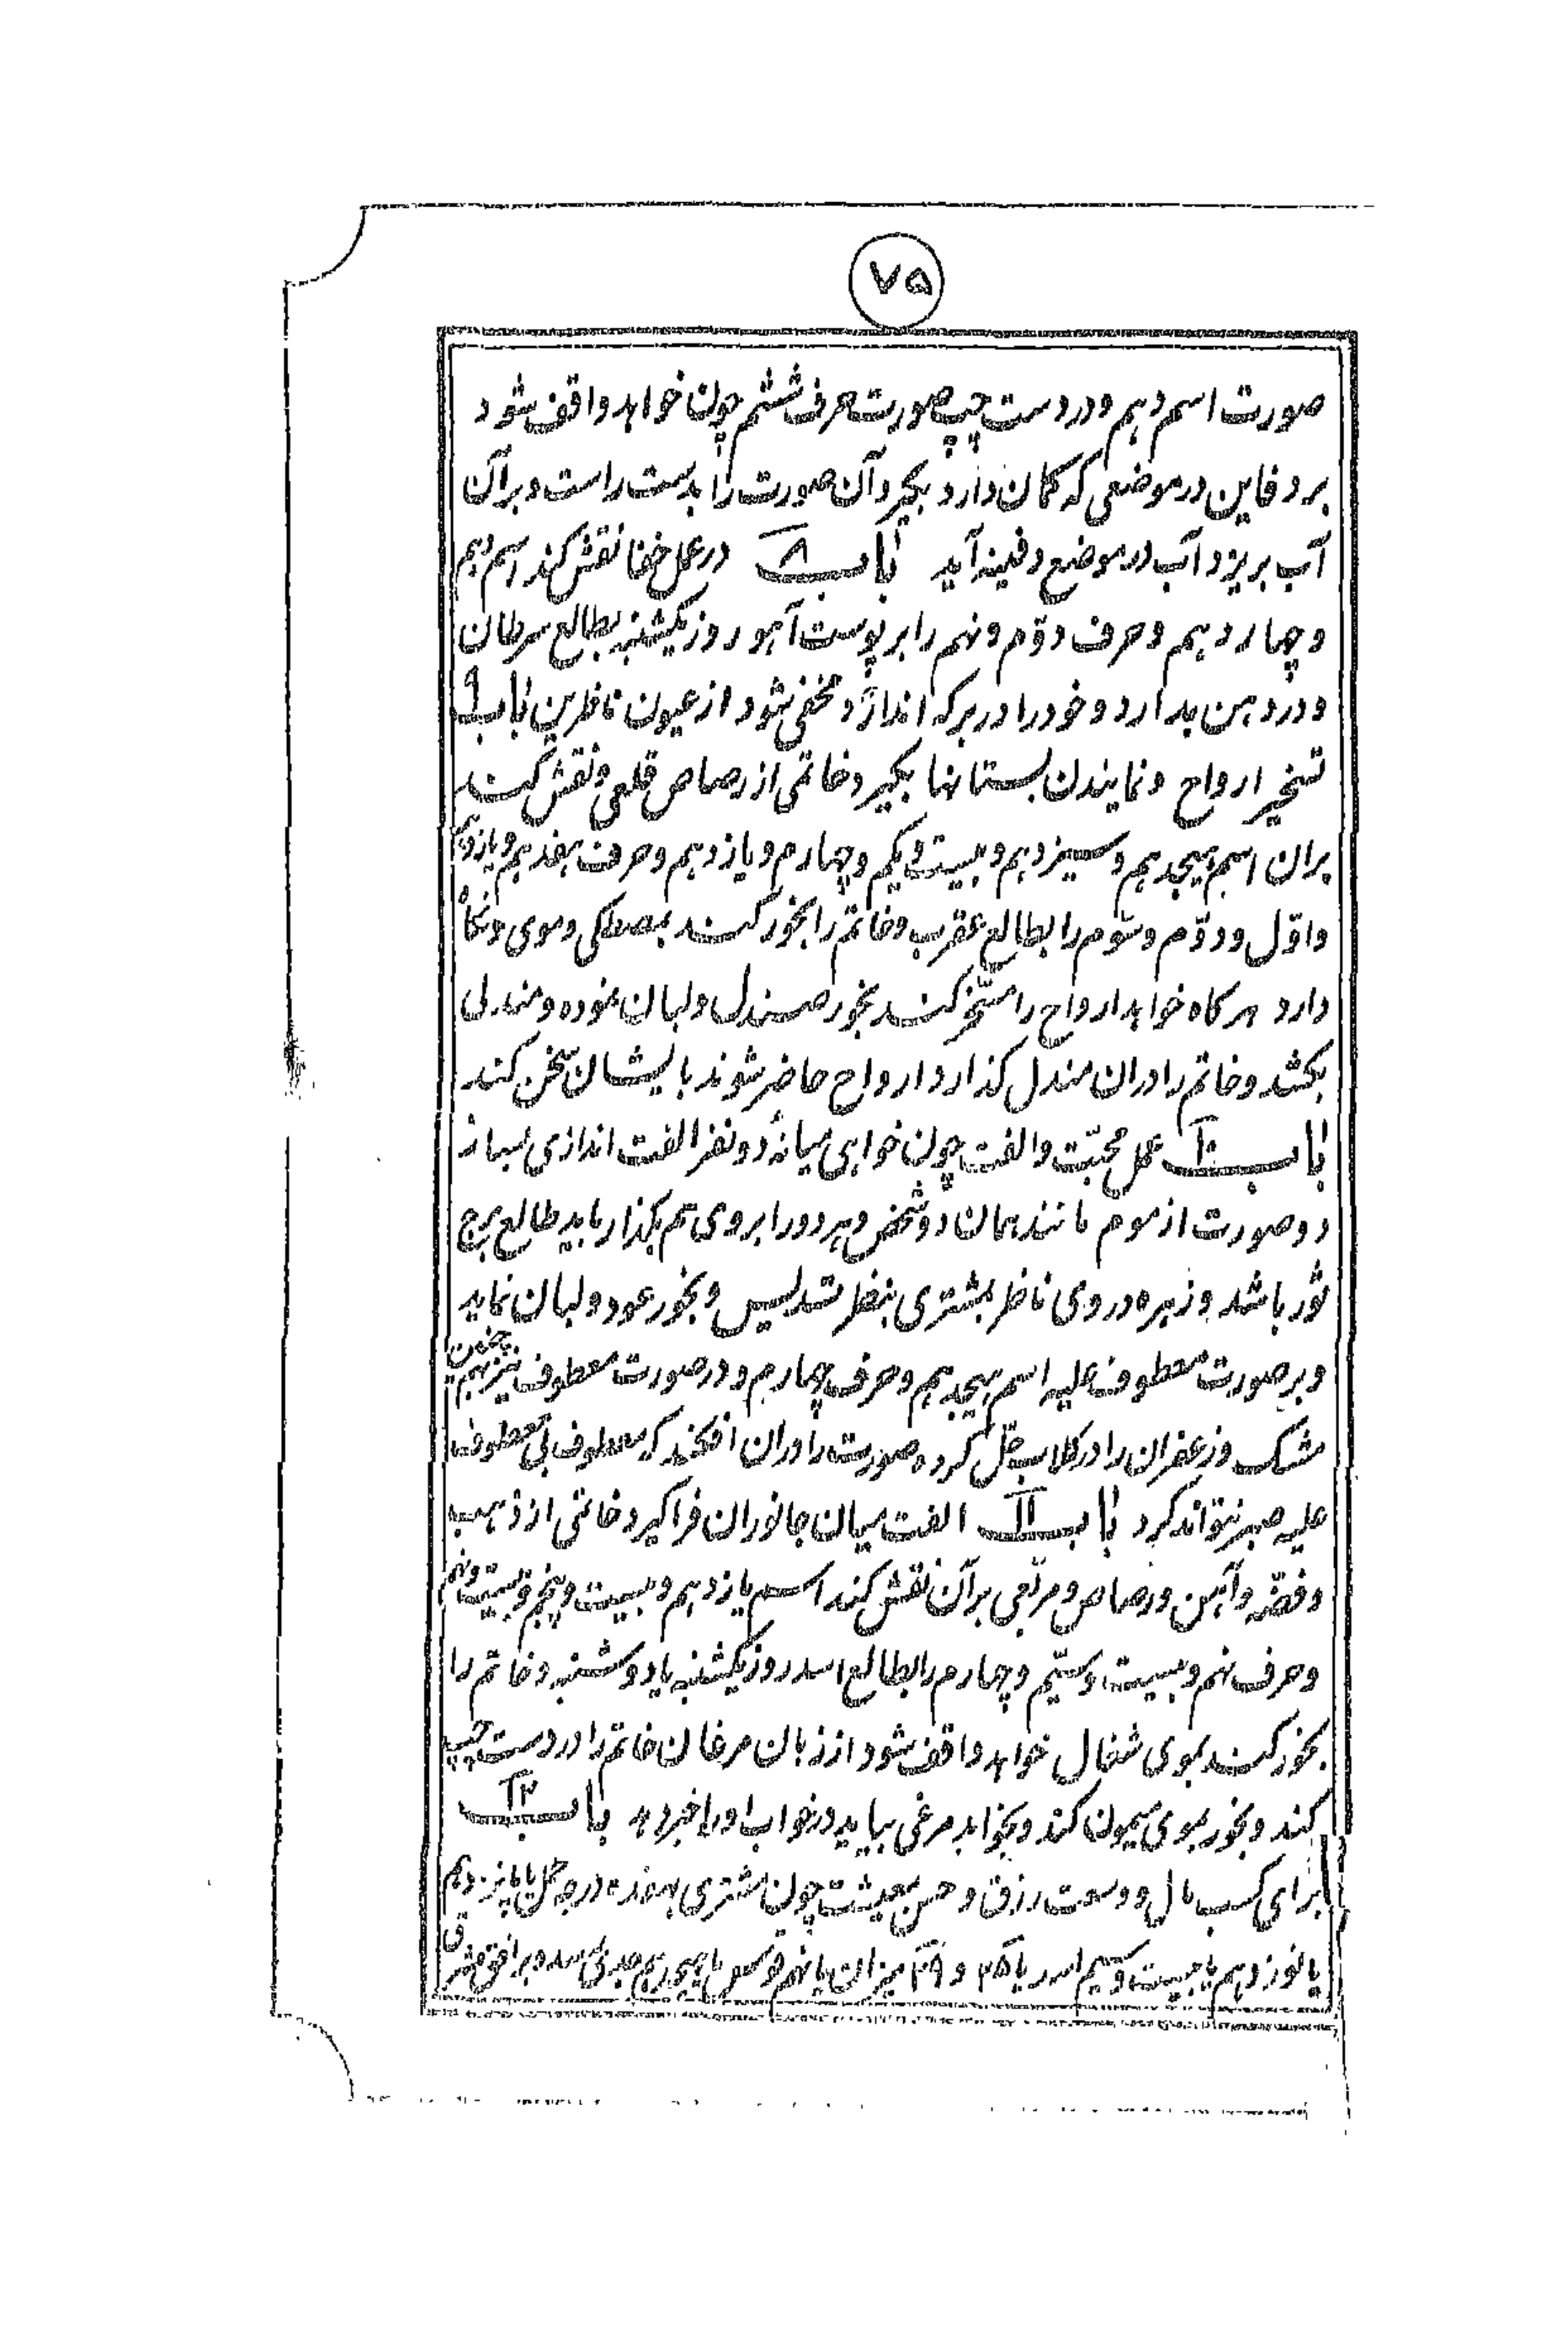 ۷۵
صورت اسم دهم و در دست چپ صورت حرف ششم چون خواهد واقف شود
بر دفاین در موضعی که گمان دارد بگیرد آن صورت را بدست راست و بر آن
آب بریزد آب در موضع دفینه آید باب ۸ در عمل خفا نقش کند اسم دهم
و چهاردهم و حرف دوّم و نهم را بر پوست آهو روز یکشنبه بطالع سرطان
و در دهن بدارد و خود را در برکه اندازد مخفی شود از عیون ناظرین باب ۹
تسخیر ارواح و نمایندن بستانها بگیرد خاتمی از رصاص قلعی و نقش کند
بران اسم هیجدهم و سیزدهم و بیست و یکم و چهارم و یازدهم و حرف هفدهم و یازدهم
و اوّل و دوّم و سوّم را بطالع عقرب و خاتم را بخور کند بمصطکی و موی و نگاه
دارد هر گاه خواهد ارواح را مسّخر کند بخور صندل و لبان نموده و مندلی
بکشد و خاتم را دران مندل گذارد ارواح حاضر شوند با ایشان سخن کند
باب ۱۰ عمل محبّت و الفت چون خواهی میانهٔ دو نفر الفت اندازی بساز
دو صورت از موم مانند همان دو شخص و هر دو را بروی هم بگذار باید طالع برج
ثور باشد و زهره در وی ناظر بمشتری بنظر تسدیس و بخور عود و لبان نماید
و بر صورت معطوف علیه اسم هیجدهم و حرف چهارم و در صورت معطوف نیز همچنین
مشک و زعفران را در گلاب حلّ کرده صورت را دران افکند که معطوف بی معطوف
علیه صبر نتواند کرد باب ۱۱ الفت میان جانوران فراگیرد خاتمی از ذهب
و فضّه و آهن و رصاص و مربّعی برآن نقش کند اسم یازدهم و بیست و پنجم و بیست و نهم
و حرف نهم و بیست و سیّم و چهارم را بطالع اسد روز یکشنبه یا دوشنبه و خاتم را
بخور کند بموی شغال خواهد واقف شود از زبان مرغان خاتم را در دست چپ
کند و بخور بموی میمون کند و بخوابد مرغی بیاید در خواب او را خبر دهد باب ۱۲
برای کسب مال و وسعت رزق و حسن معیشت چون مشتری بهفده درجه حمل یا پانزدهم
یا نوزدهم یا بیست و سیم اسد یا ۲۵ و ۲۹ میزان یا نهم قوس یا هیجدهم جدی و بر افق مشرق